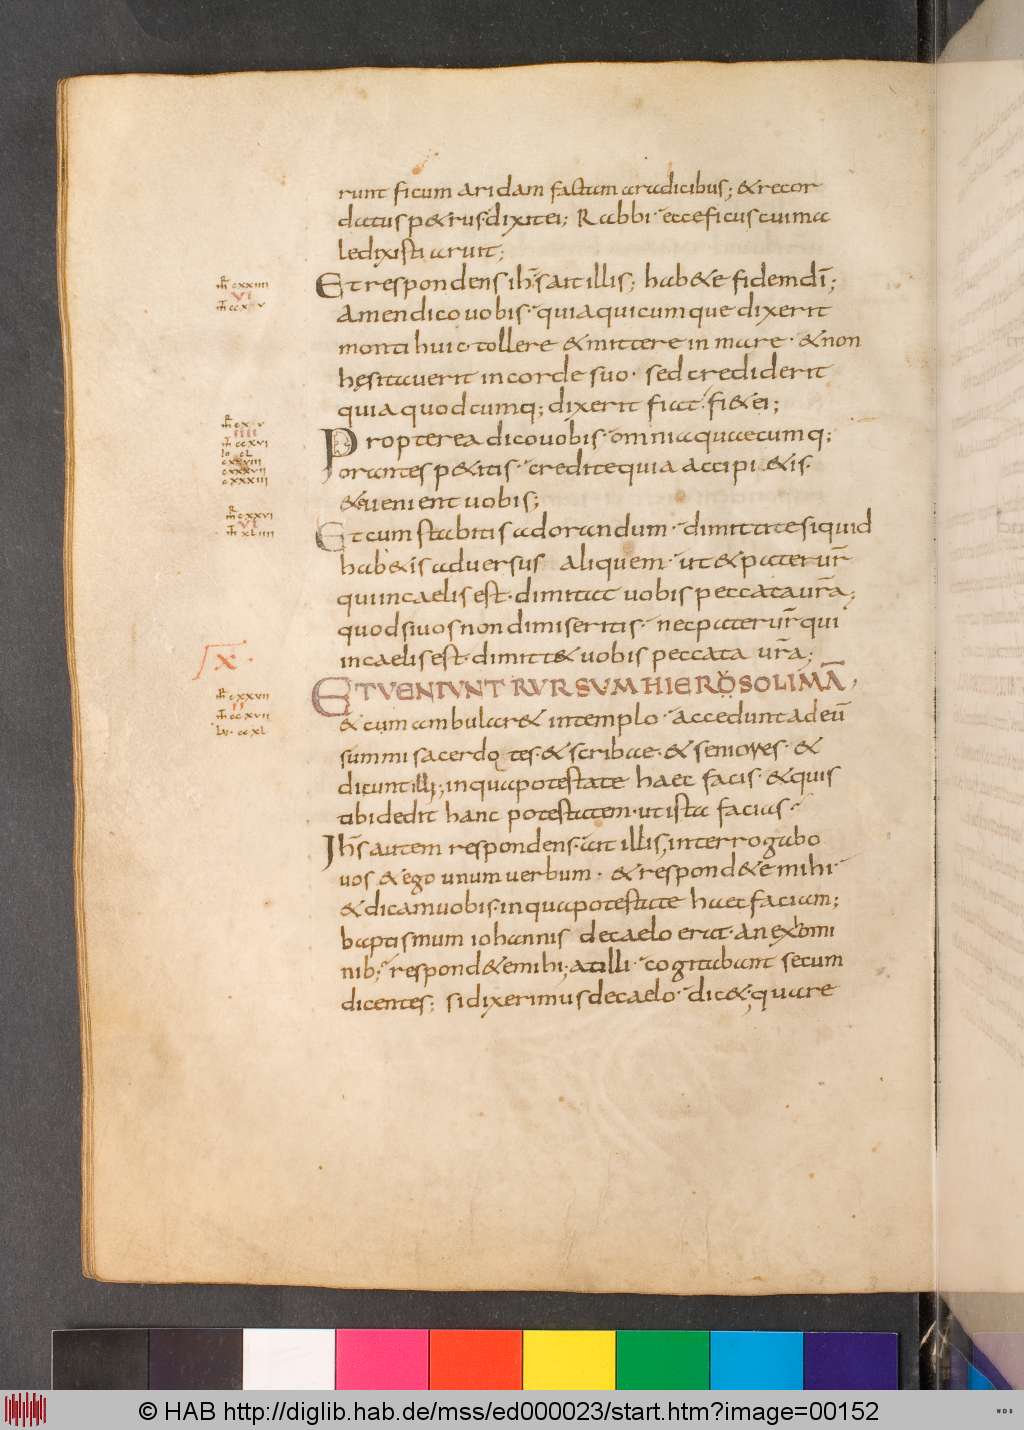 runt ficum aridam factam a radicibus; & recor
datus p&rus dixit ei; Rabbi· ecce ficus cui ma
ledixisti aruit;
Et respondens ih̅s ait illis; hab&e fidem di̅;
Amen dico uobis· quia quicumque dixerit
monti huic· tollere & mittere in mare· & non
hęsitauerit in corde suo· sed crediderit
quia quodcumq; dixerit fiat· fi& ei;
Propterea dico uobis· omnia quaecumq;
orantes p&itis· credite quia accipi&is·
& euenient uobis;
Et cum stabitis ad orandum· dimittite si quid
hab&is aduersus aliquem· ut & pater ur̅
qui in caelis est· dimittat uobis peccata ur̅a;
quod si uos non dimiseritis· nec pater ur̅ qui
in caelis est· dimitt& uobis peccata ur̅a;
x·
ET VENIVNT RVRSVM HIEROSOLIMA̅,
& cum ambular& in templo· accedunt ad eu̅
summi sacerdotes· & scribae· & seniores· &
dicunt illi; in qua potestate haec facis· & quis
tibi dedit hanc potestatem· ut ista facias·
Ih̅s autem respondens· ait illis; interrogabo
uos & ego unum uerbum· & respond&e mihi·
& dicam uobis· in qua potestate haec faciam;
baptismum iohannis de caelo erat· an ex homi
nib; respond&e mihi; at illi· cogitabant secum
dicentes; si dixerimus de caelo· dic&; quare
mr̅ cxxiiii
VI
mt̅
mr̅
IIII
mt̅ ccxvi
Io cL
cxxviii
cxxxvii
cxxxiii
mr̅ cxxvi
VI
mt̅ xliiii
mr̅ cxxvii
II
mt̅ ccxvii
Lu· ccxl
© HAB http://diglib.hab.de/mss/ed000023/start.htm?image=00152
WDB